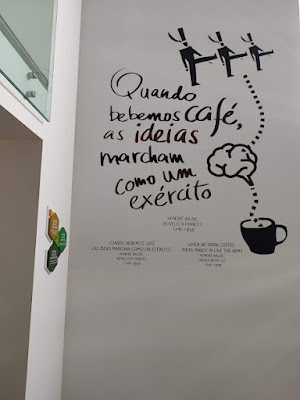 Quando
bebemos café,
as ideias
marcham
como um
exército
HONORÉ BALZAC,
NOVELISTA FRANCÊS,
1799-1850
CUANDO BEBEMOS CAFÉ,
LAS IDEAS MARCHAN COMO UN EJÉRCITO
HONORÉ BALZAC,
1799-1850
WHEN WE DRINK COFFEE,
IDEAS MARCH IN LIKE THE ARMY
HONORÉ BALZAC,
1799-1850